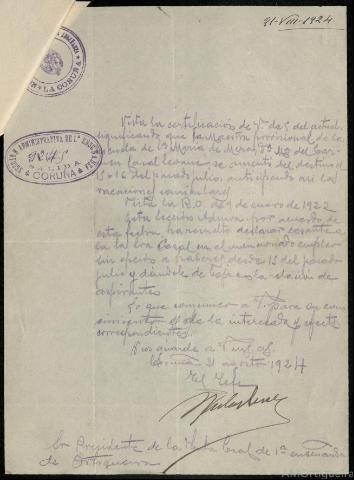 21-VIII-1924
LA CORUÑA
SECCIÓN ADMINISTRATIVA DE 1ª ENSEÑANZA
SALIDA
CORUÑA
Vista la certificación de V. de 5 del actual
significando que la Maestra provisional de la
Escuela de Sta María de Mera, Dª Mª del Car-
men Casal se ausentó del destino el
15 o 16 del pasado julio anticipando así las
vacaciones caniculares
Vista la R.O. de 9 enero de 1922
Esta Sección Admva. por acuerdo de
esta fecha, ha resuelto declarar cesante a
la Sra Casal en el mencionado empleo
con efectos a partir desde 15 del pasado
julio y dándole de baja en la relación de
aspirantes
Lo que comunico a V. para su cono-
cimiento, el de la interesada y efectos
correspondientes.
Dios guarde a V. ms. as.
Coruña 21 agosto 1924
El Jefe
Sr Presidente de la Junta local de 1ª enseñanza
de Ortigueira